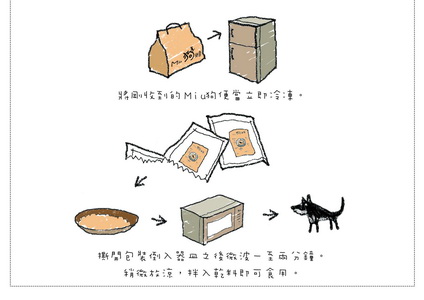 將剛收到的Miu狗便當立即冷凍。
撕開包裝倒入器皿之後微波一至兩分鐘。
稍微放涼，拌入乾料即可食用。